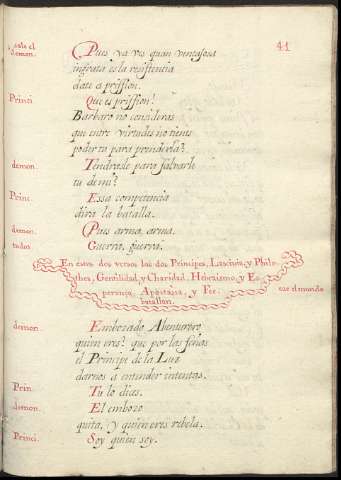 41
sale el
demon.
Pues ya ves quan ventajosa
ingrata es la resistencia
date a prission.
Princi.
Que es prission?
Barbaro no consideras
que entre virtudes no tienes
poder tu para prenderla?
demon.
Tendrasle para salvarle
tu de mi?
Princ.
Essa competencia
dira la batalla.
demon.
Pues arma, arma.
todos
Guerra, guerra.
En estos dos versos los dos Principes, Lascivia, y Philo-
thea, Gentilidad, y Charidad, Hebraismo, y Es-
peranza, Apostasia, y Fee.
batallan.
cae el mundo
demon.
Embozado Abenturero
quien eres? que por las señas
el Principe de la Luz
darnos a entender intentas.
Prin.
Tu lo dizes.
demon.
El embozo
quita, y quien eres rebela.
Princi.
Soy quien soy.